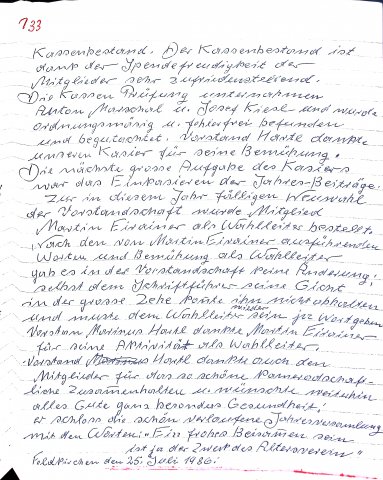 133
Kassenbestand. Der Kassenbestand ist
dank der Spendefreudigkeit der
Mitglieder sehr zufriedenstellend.
Die Kassen Prüfung unternahmen
Anton Marschal u. Josef Kiesl und wurde
ordnungsmäsig u. fehlerfrei befunden
und begutachtet. Vorstand Hartl dankte
unseren Kasier für seine Bemühung.
Die nächste grosse Aufgabe des Kasiers
war das Einkasieren der Jahres-Beiträge.
Zur in diesem Jahr fälligen Neuwahl
der Vorstandschaft wurde Mitglied
Martin Eirainer als Wahlleiter bestellt.
Nach den von Martin Eirainer ausführenden
Worten und Bemühung als Wahlleiter
gab es in der Vorstandschaft keine Änderung,
selbst dem Schriftführer seine Gicht
in der grosse Zehe konte ihn nicht abhalten
und muste dem Wahlleiter sein ja Wort geben
Vorstan Marinus Hartl dankte Martin Eirainer
für seine Aktivität als Wahlleiter.
Vorstand Marinus Hartl dankte auch den
Mitglieder für das so schöne kameradschaft-
liche Zusammenhalten u. wünschte weiterhin
alles Gute ganz besonders Gesundheit!
er schloss die schön verlaufene Jahresversamlung
mit den Worten: "Ein frohes Beisamen sein
ist ja der Zweck des Altersverein"
Feldkirchen den 25. Juli 1986.